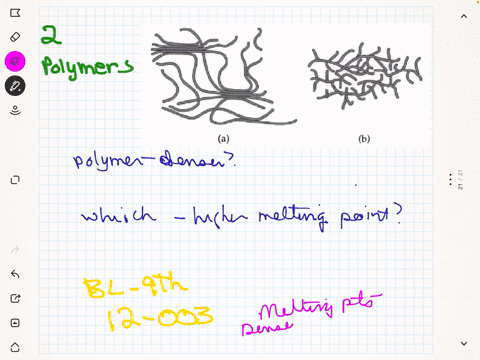 2
Polymers
(a)
(b)
polymer - denser?
which - higher melting point?
BL-9th
12-003
Melting pts
Dense
21 / 21